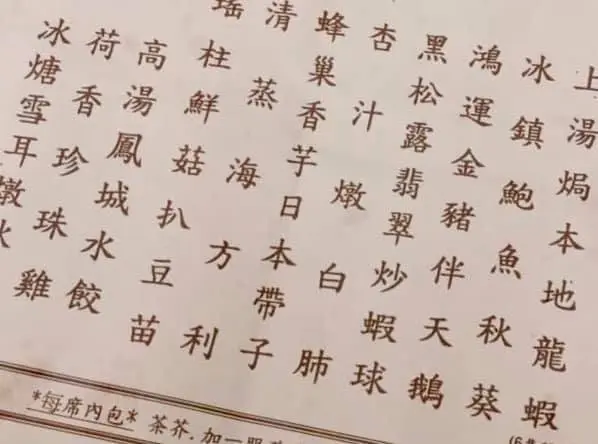 上湯焗本地龍蝦
冰鎮鮑魚秋葵
鴻運金豬伴天鵝
黑松露翡翠炒蝦球
杏汁燉白肺
蜂巢香芋日本帶子
清蒸海方利
瑤柱鮮菇扒豆苗
高湯鳳城水餃
荷香珍珠雞
冰糖雪耳燉
*每席內包* 茶芥.加一